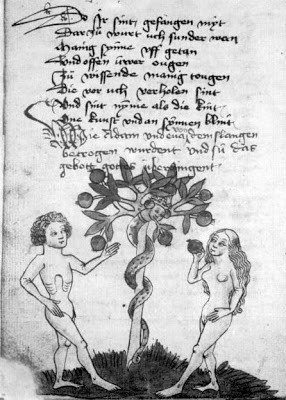 So ir sint gefangen myt
Dar zů wirt uch sunder wen
Manig synne uff getan
Und offen uwer ougen
Zů wissende manig tougen
Die vor uch verholen sint
Und sint nyme als die kint
One kunst und an synnen blint
Wie Adam und eva von dem slangen
betrogen wurdent und sů das
gebott gottes ubergingent